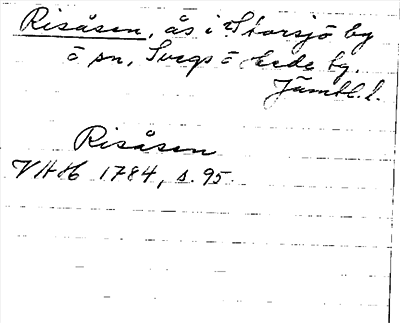 Risåsen, ås i Storsjö by
o sn, Svegs o Hede tg.
Jämtl. l.
Risåsen
VHH 1784, s. 95